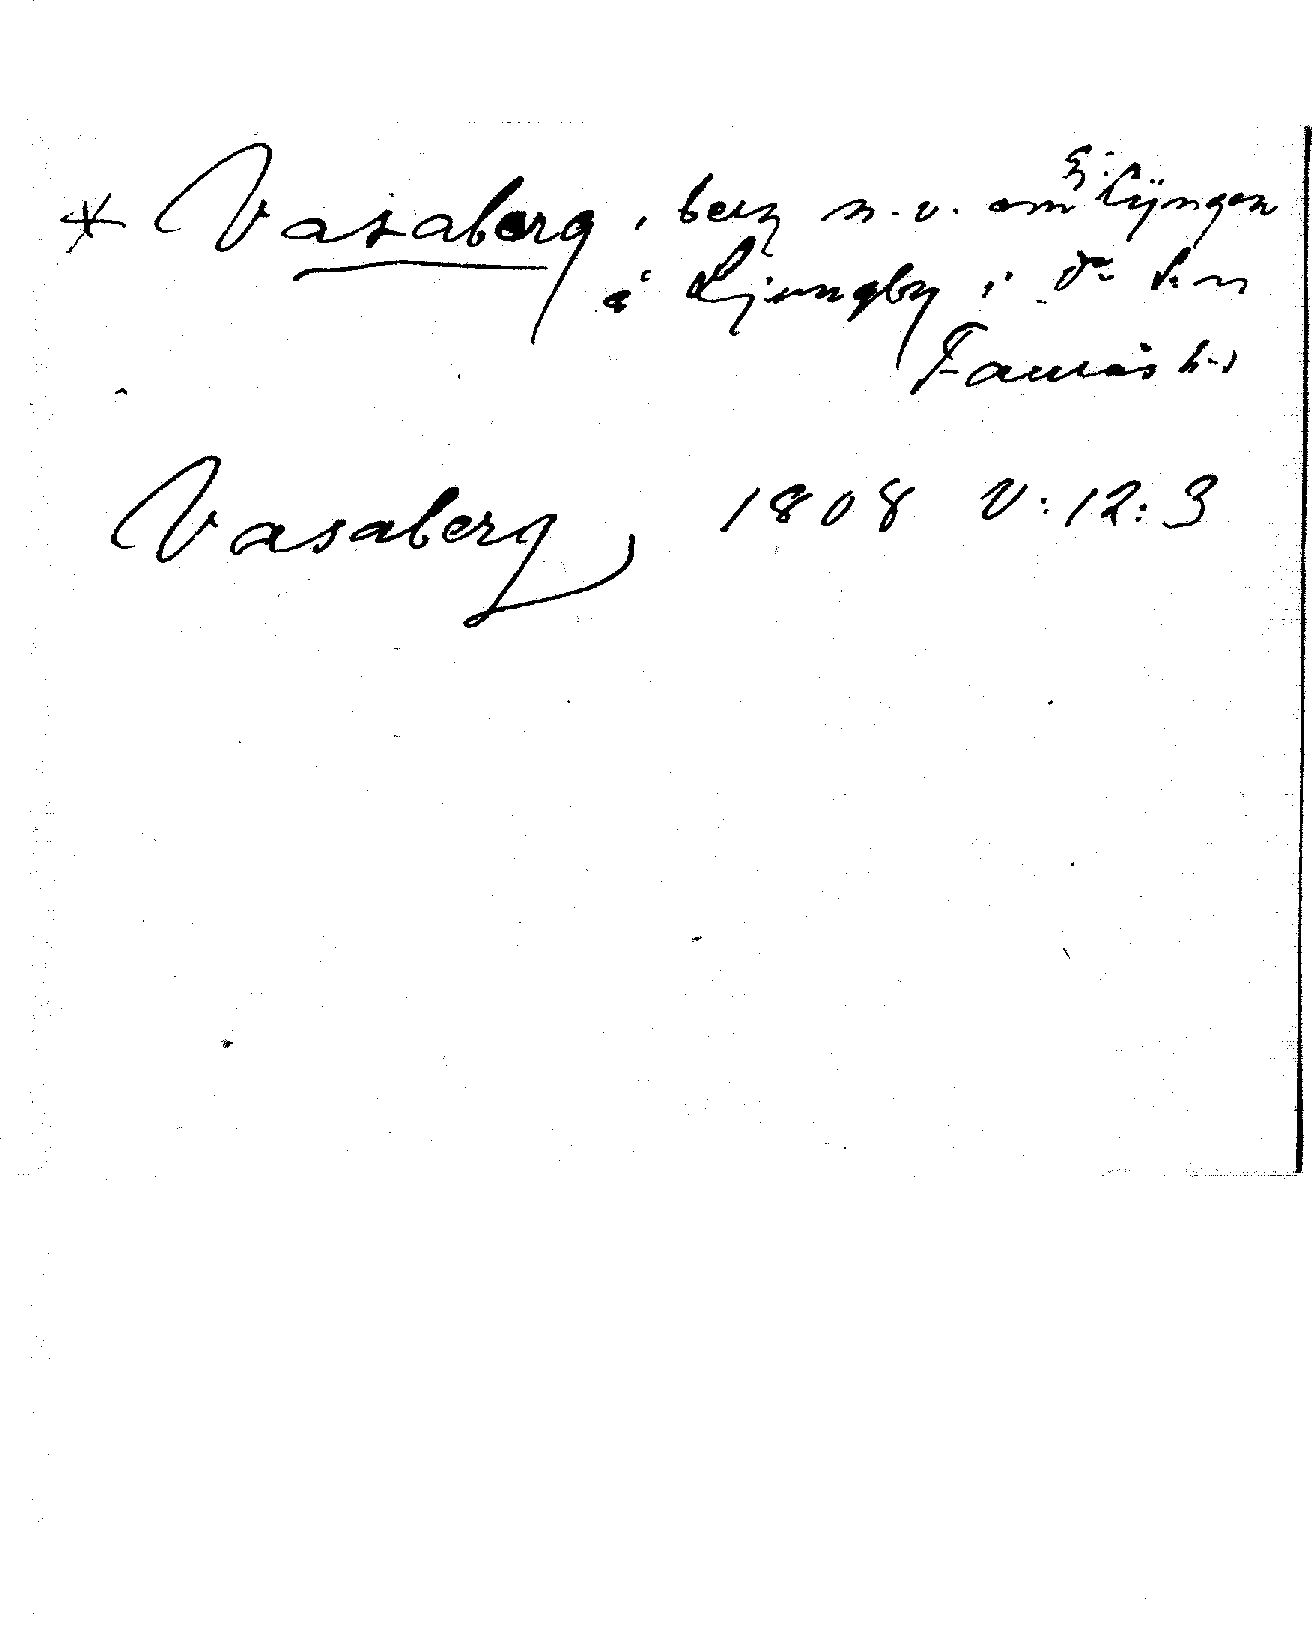 * Vasaberg, berg n.v. om Lÿngen
å Ljungby i
Faurås hd
Vasaberg, 1808 V:12:3